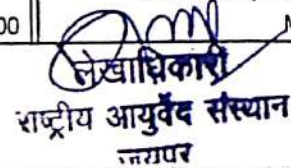 00
लेखाधिकारी
राष्ट्रीय आयुर्वेद संस्थान
जयपुर